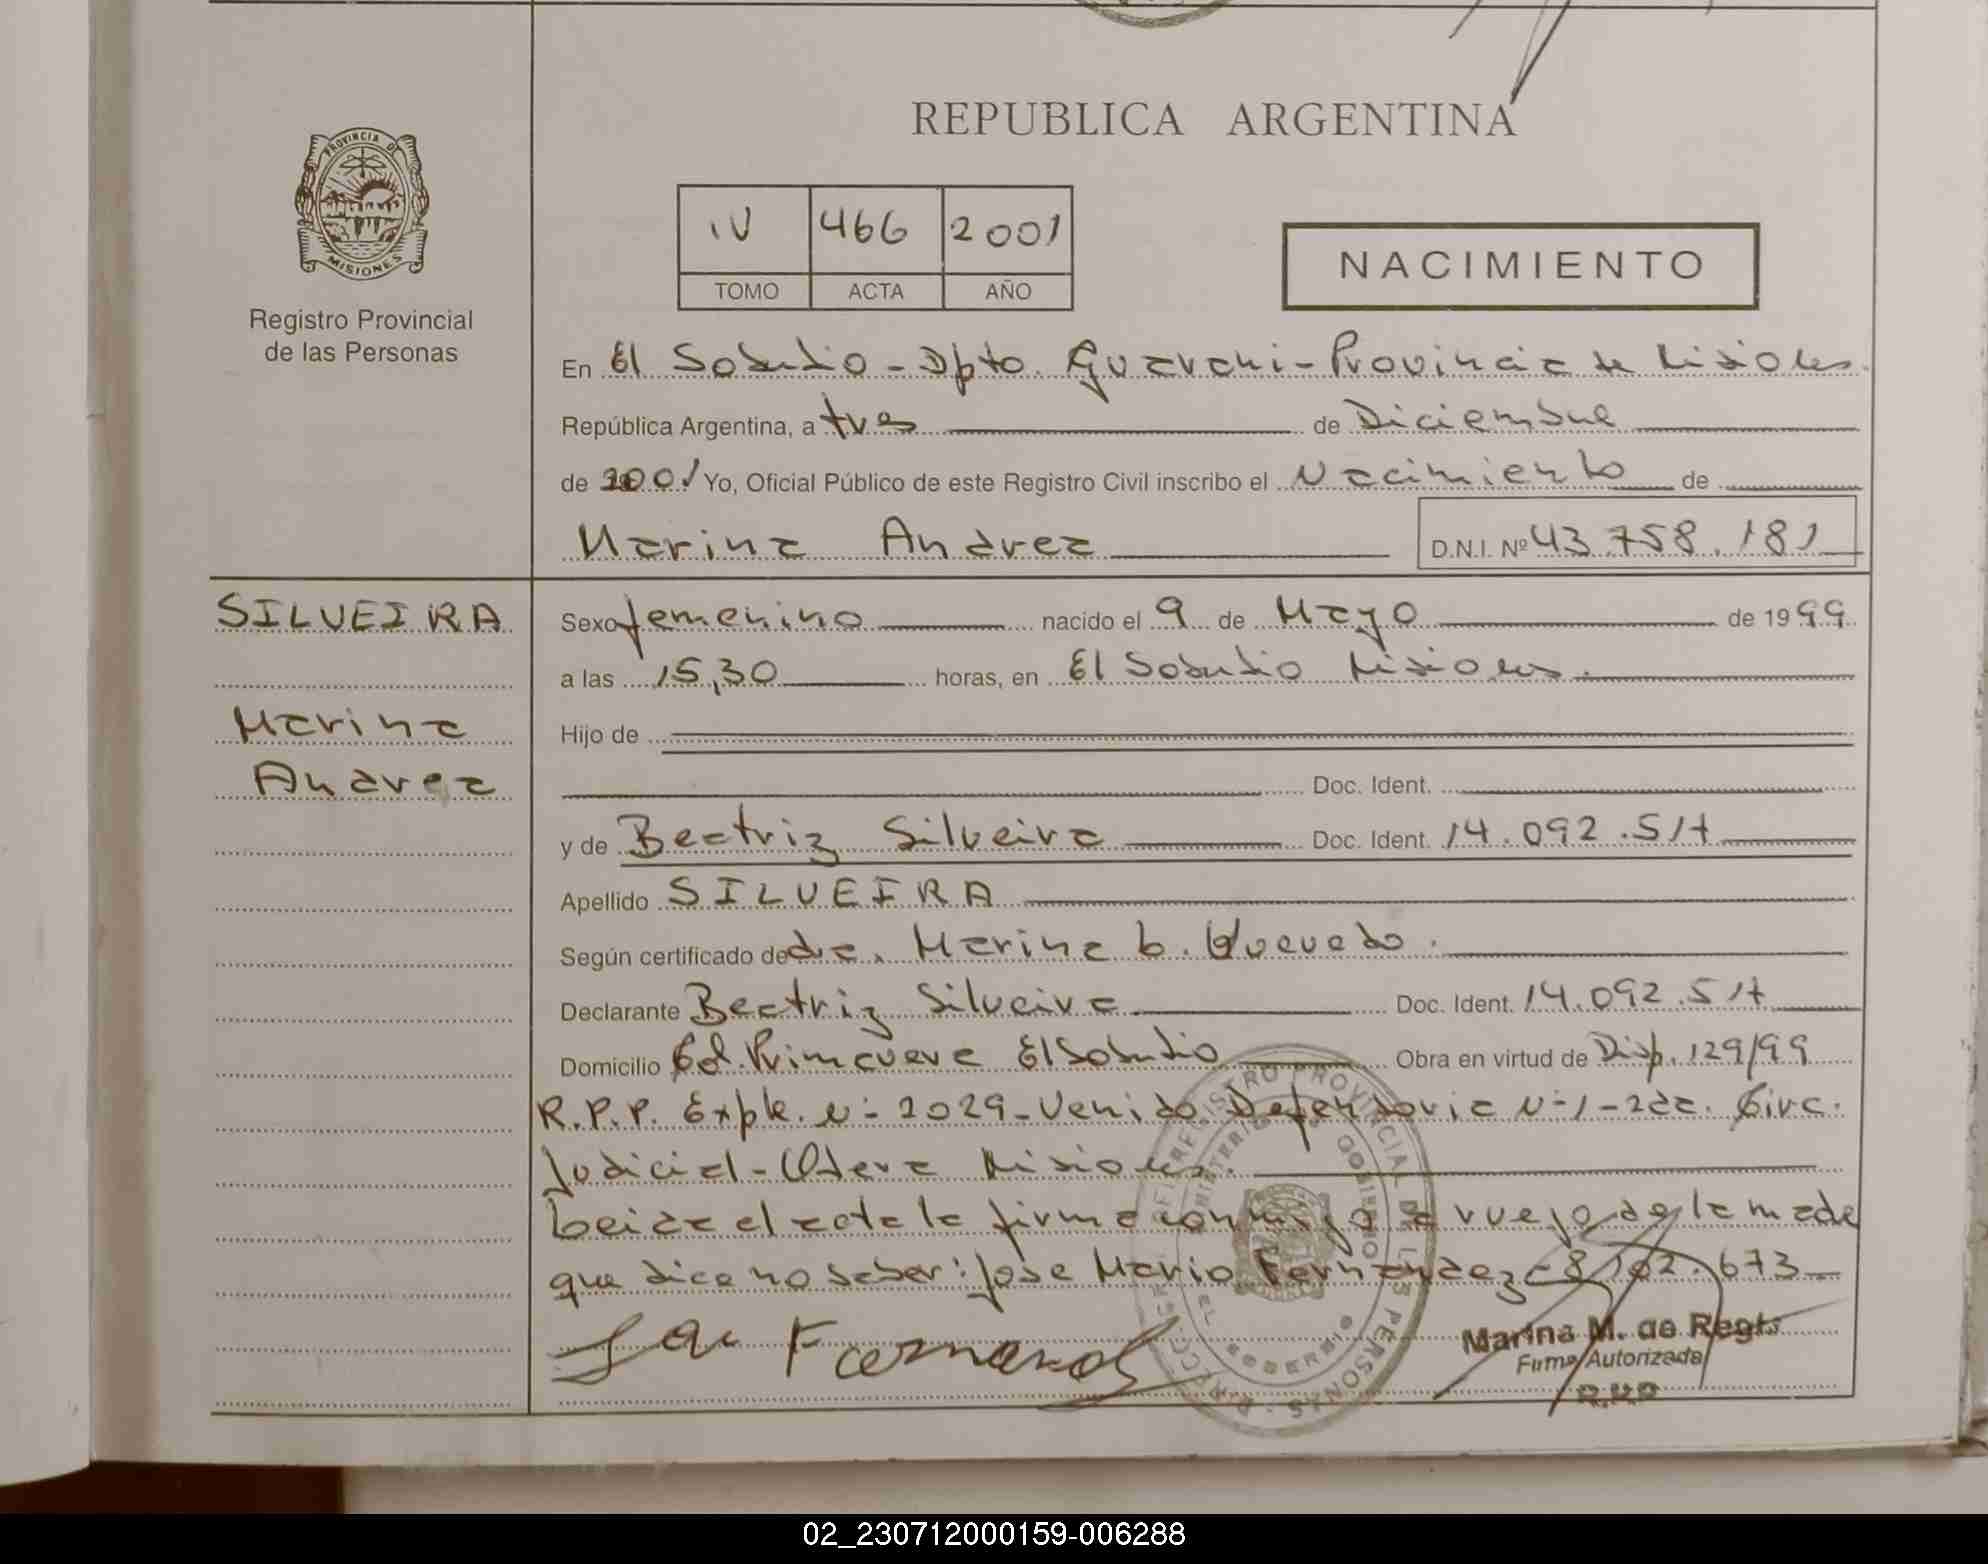 REPUBLICA ARGENTINA
PROVINCIA DE MISIONES
Registro Provincial
de las Personas
IV 466 2001
TOMO ACTA AÑO
NACIMIENTO
En El Soberbio - Dpto. Guarani - Provincia de Misiones.
República Argentina, a tres de Diciembre
de 2001 Yo, Oficial Público de este Registro Civil inscribo el Nacimiento de
Marina Andrea D.N.I. Nº 43.758.181
SILVEIRA
Marina
Andrea
Sexo femenino nacido el 9 de Mayo de 1999
a las 15,30 horas, en El Soberbio Misiones.
Hijo de
Doc. Ident.
y de Beatriz Silveira Doc. Ident. 14.092.517
Apellido SILVEIRA
Según certificado de dra. Marina b. Quevedo.
Declarante Beatriz Silveira Doc. Ident. 14.092.517
Domicilio Col. Primavera El Soberbio Obra en virtud de Disp. 129/99
R.P.P. Expte. Nº 2029 - Venido Defensoria Nº 1 - 2da. Circ.
Judicial - Obera Misiones.
Leida el acta la firma conmigo a ruego de la made
que dice no saber: Jose Mario Fernandez 8.102.673
Marina M. de Regis
Firma Autorizada
R.P.P
02_230712000159-006288